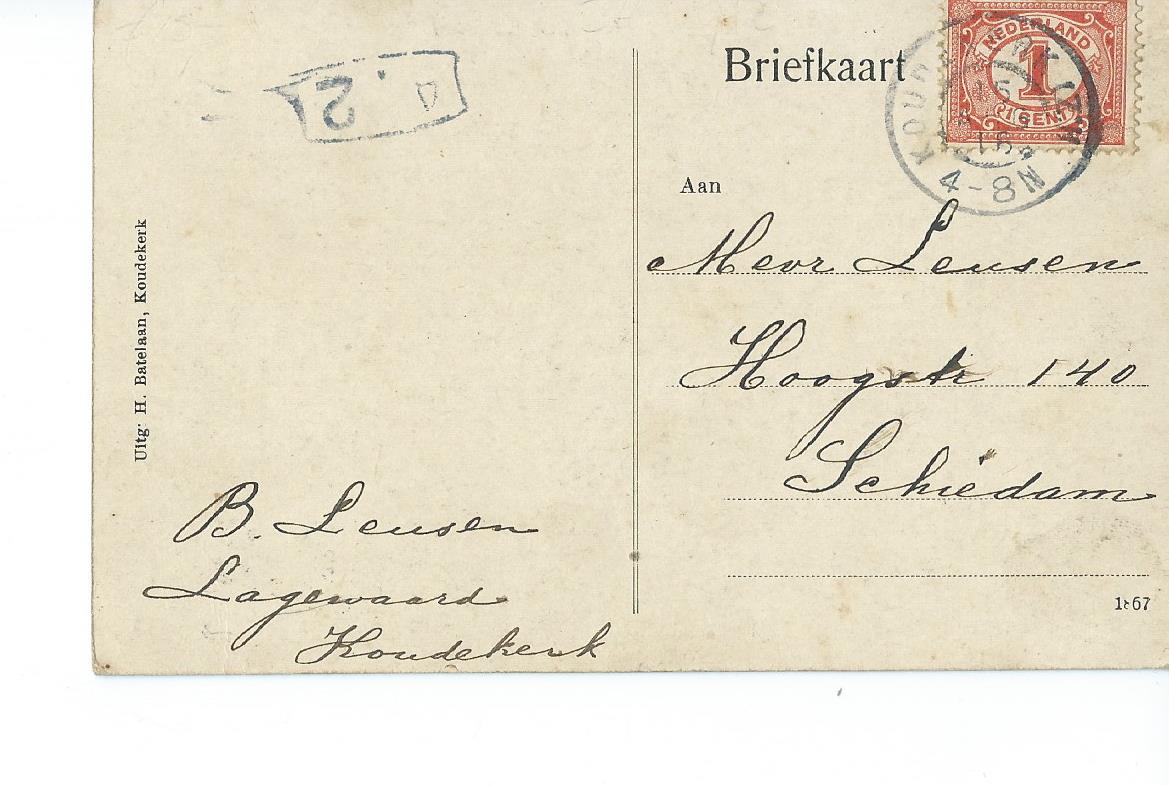 Briefkaart
NEDERLAND
1
1 CENT
4-8N
2
Aan
Mevr Leusen
Hoogstr 140
Schiedam
Uitg: H. Batelaan, Koudekerk
B. Leusen
Lagewaard
Koudekerk
1867